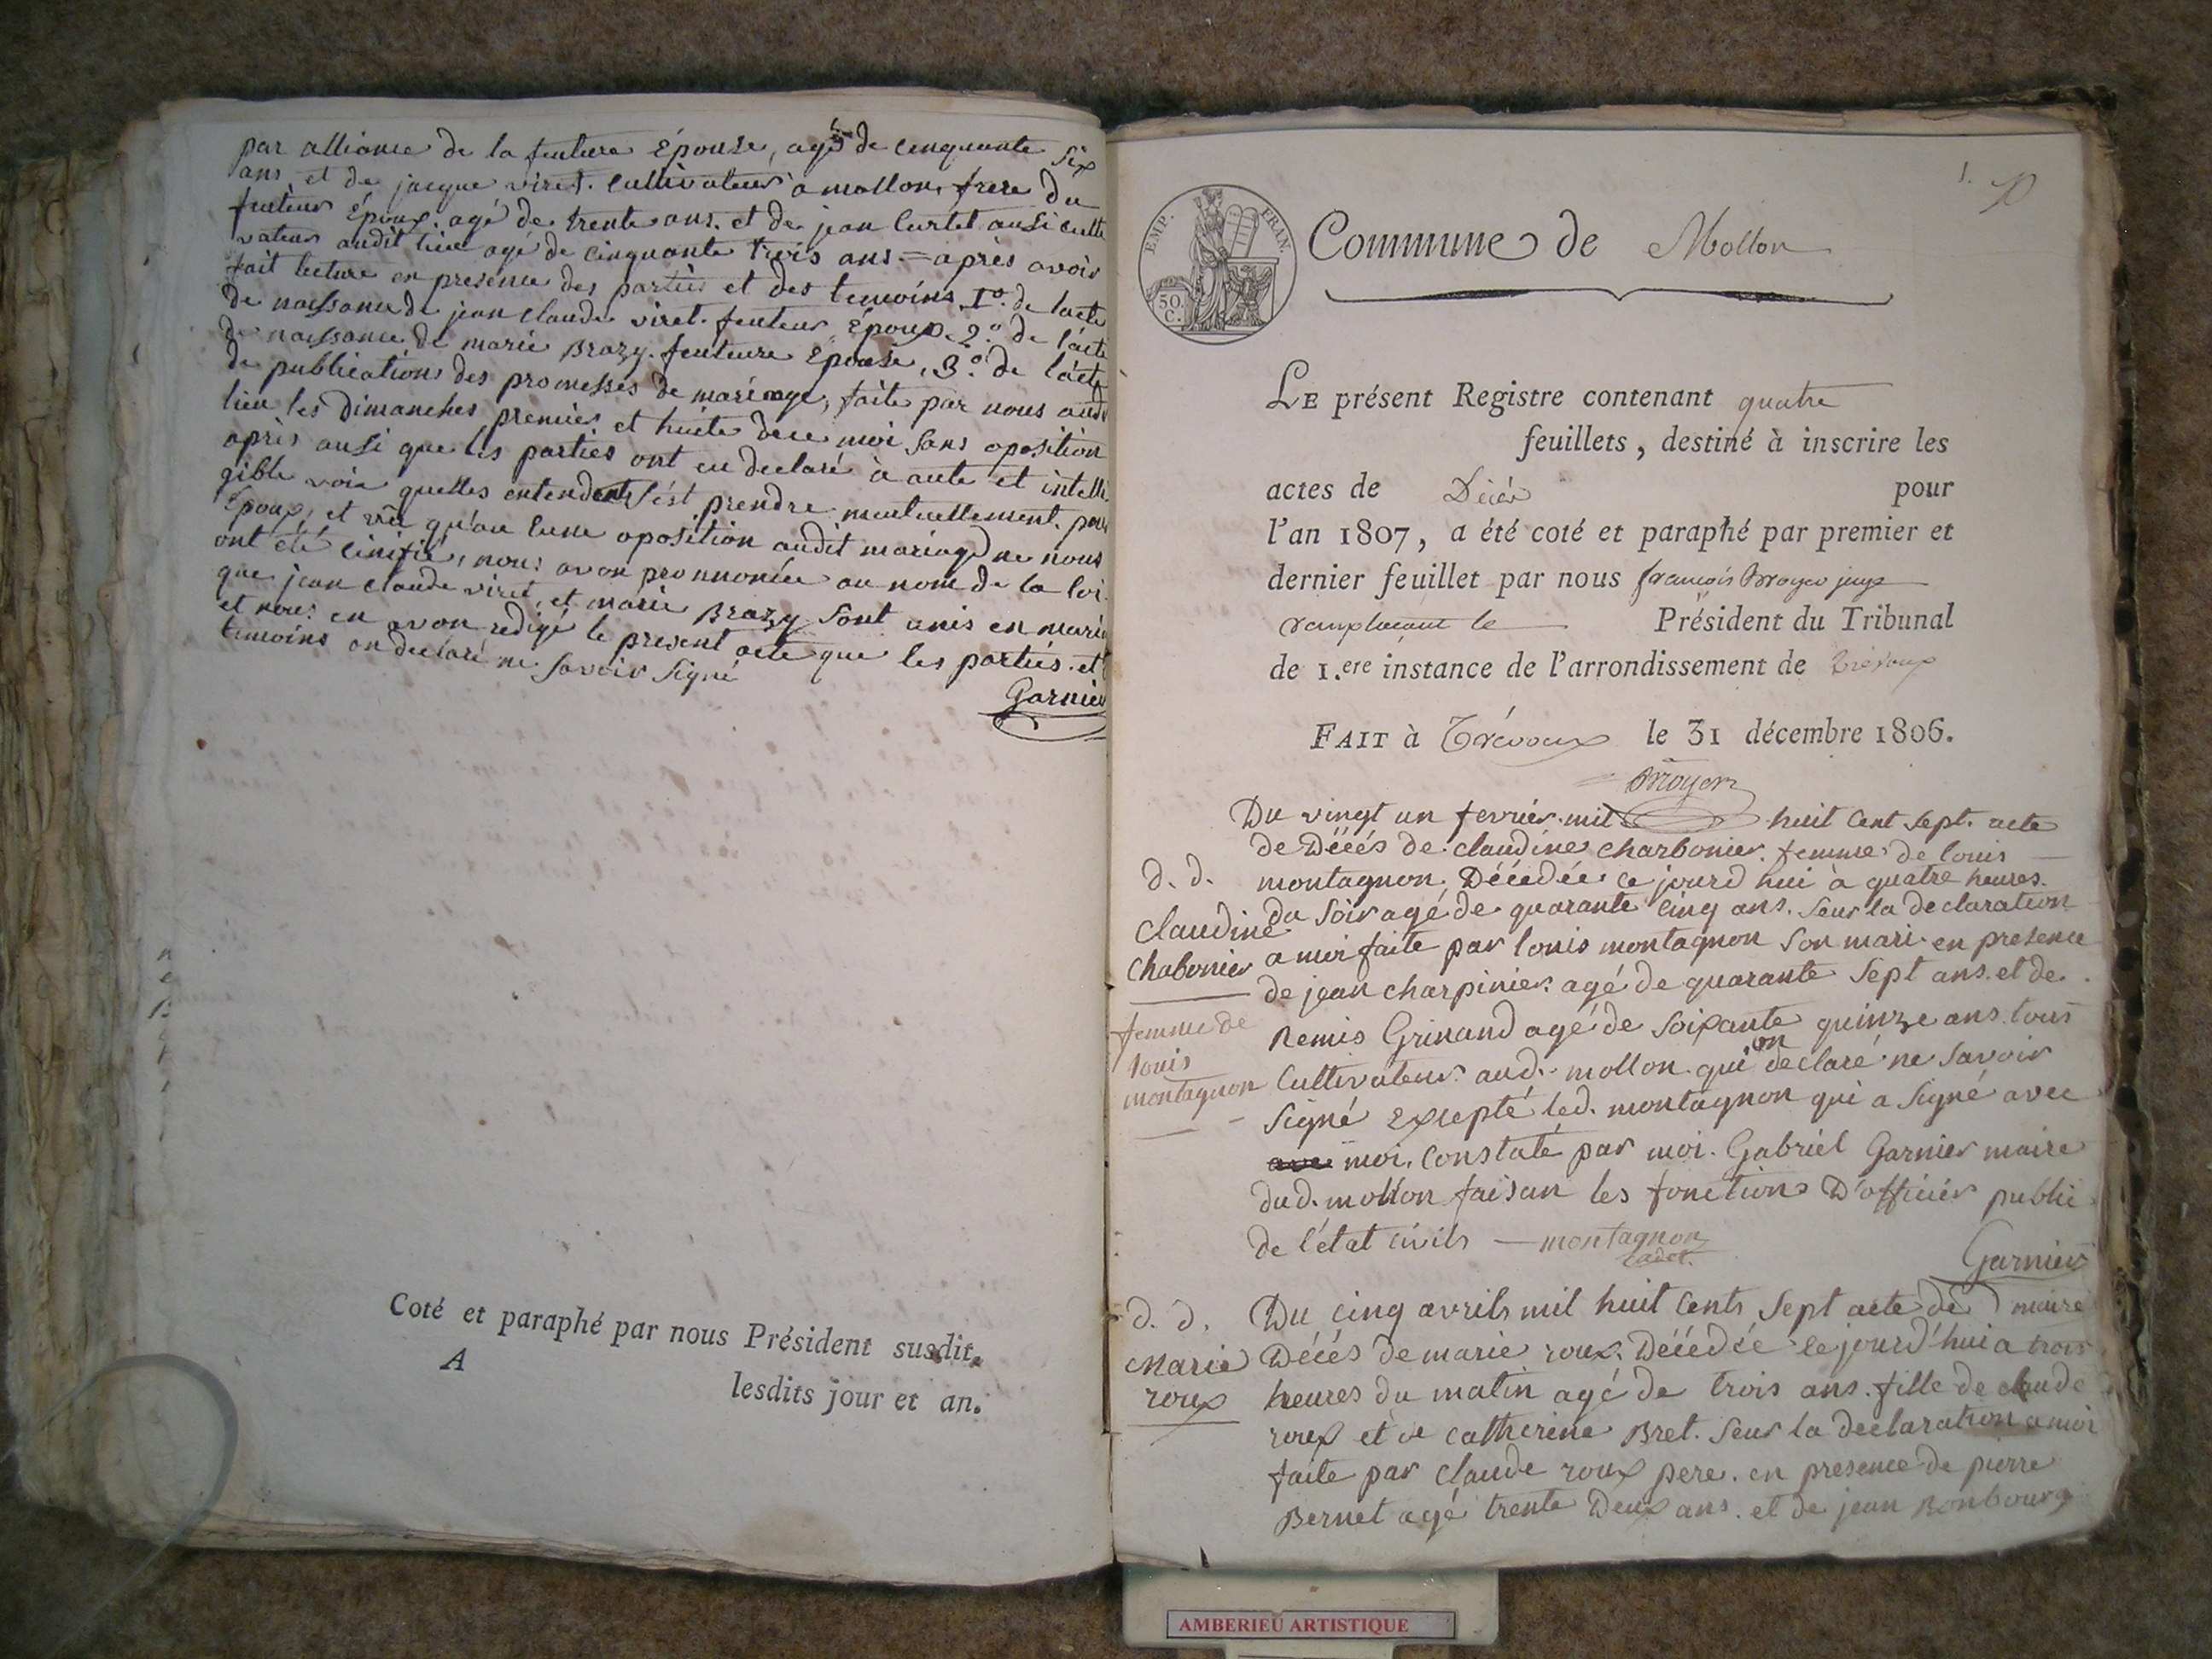 par alliance de la feuture Épouse, agé de cenquante six
ans et de jacque viret. cultivateur a mollon, frere du
feuteur Époux. agé de trente ans. et de jean Curtet ausi culti
vateur audit lieu agé de cinquante trois ans. = après avoir
fait lecture en presence des parties et des temoins 1º. de lacte
de naissance de jean claude viret. feuteur Époux. 2.º de l'acte
de naissance de marie Brazy. feuteure Épouse, 3.º de l'acte
de publications des promesses de mariage, faite par nous audi
lieu les Dimanches premier et huite de ce moi sans oposition
après ausi que les parties ont eu declaré à aute et intelli
gible voix quelles entendent s'est prendre mutuellement. pour
Époux, et vû qu'au cune oposition audit mariage ne nous
ont été sinifié, nous avon pronnoncée au nom de la loi
que jean claude viret, et marie Brazy sont unis en maria
et nous en avon redigé le present acte que les parties. et
temoins on declaré ne savoir signé
Garnier
Coté et paraphé par nous Président susdit,
A lesdits jour et an.
1.
EMP. FRAN.
50. C.
Commune de Mollon
LE présent Registre contenant quatre
feuillets, destiné à inscrire les
actes de Décés pour
l'an 1807, a été coté et paraphé par premier et
dernier feuillet par nous francois Moyer juge
remplacant le Président du Tribunal
de 1.ere instance de l'arrondissement de Trévoux
FAIT à Trévoux le 31 décembre 1806.
Moyer
Du vingt un fevrier mil huit Cent sept. acte
de Décés de claudine charbonier. femme de louis
d. d. montagnon. Décédée ce jourd hui à quatre heures.
du soir agé de quarante cinq ans. seur la declaration
Claudine
a moi faite par louis montagnon son mari en presence
Chabonier
de jean charpinier. agé de quarante sept ans. et de
femme de
Remis Grinand agé de soixante quinze ans. tous
louis
on
Cultivateur aud. mollon. qui declaré ne savoir
montagnon
signé Excepté led. montagnon qui a signé avec
moi. Constaté par moi. Gabriel Garnier maire
dud. mollon faisan les fonctions D'officier public
de l'état civils — montagnon
cadet.
Garnier
d. d. Du cinq avrils mil huit Cents sept acte de maire
Marie Décés de marie roux. Décédée ce jourd'hui a trois
roux heures du matin agé de trois ans. fille de claude
roux et de catherine Bret. seur la declaration a moi
faite par claude roux pere. en presence de pierre
Bernet agé trente Deux ans. et de jean Bonbourg
AMBERIEU ARTISTIQUE